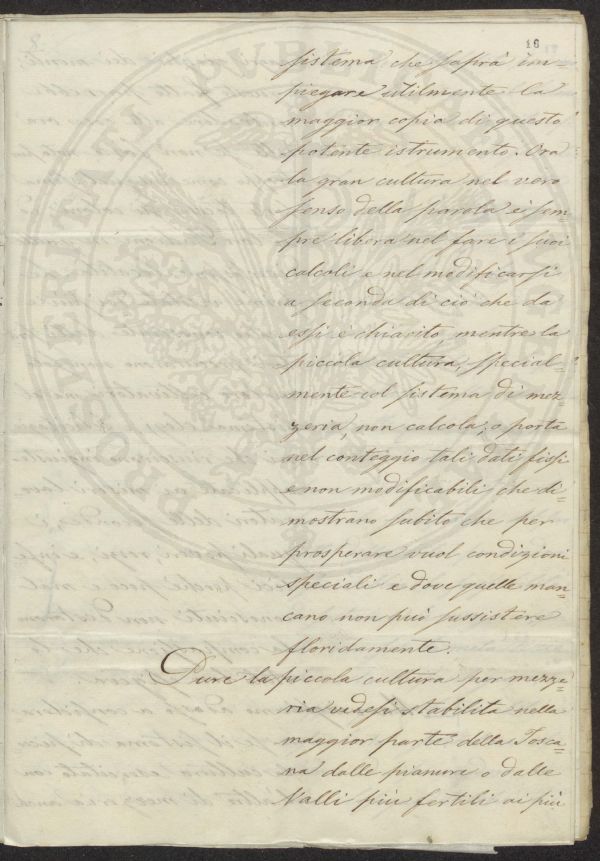 16
sistema che saprà im
piegare utilmente la
maggior copia di questo
potente istrumento. Ora
la gran cultura nel vero
senso della parola è sem=
pre libera nel fare i suoi
calcoli e nel modificarsi
a seconda di ciò che da
essi è chiarito, mentre la
piccola cultura, special=
mente col sistema di mez=
zeria, non calcola, o porta
nel conteggio tali dati fissi
e non modificabili che di=
mostrano subito che per
prosperare vuol condizioni
speciali e dove quelle man=
cano non può sussistere
floridamente.
Pure la piccola cultura per mezze=
ria vedesi stabilita nella
maggior parte della Tosca=
na dalle pianure o dalle
Valli più fertili ai più